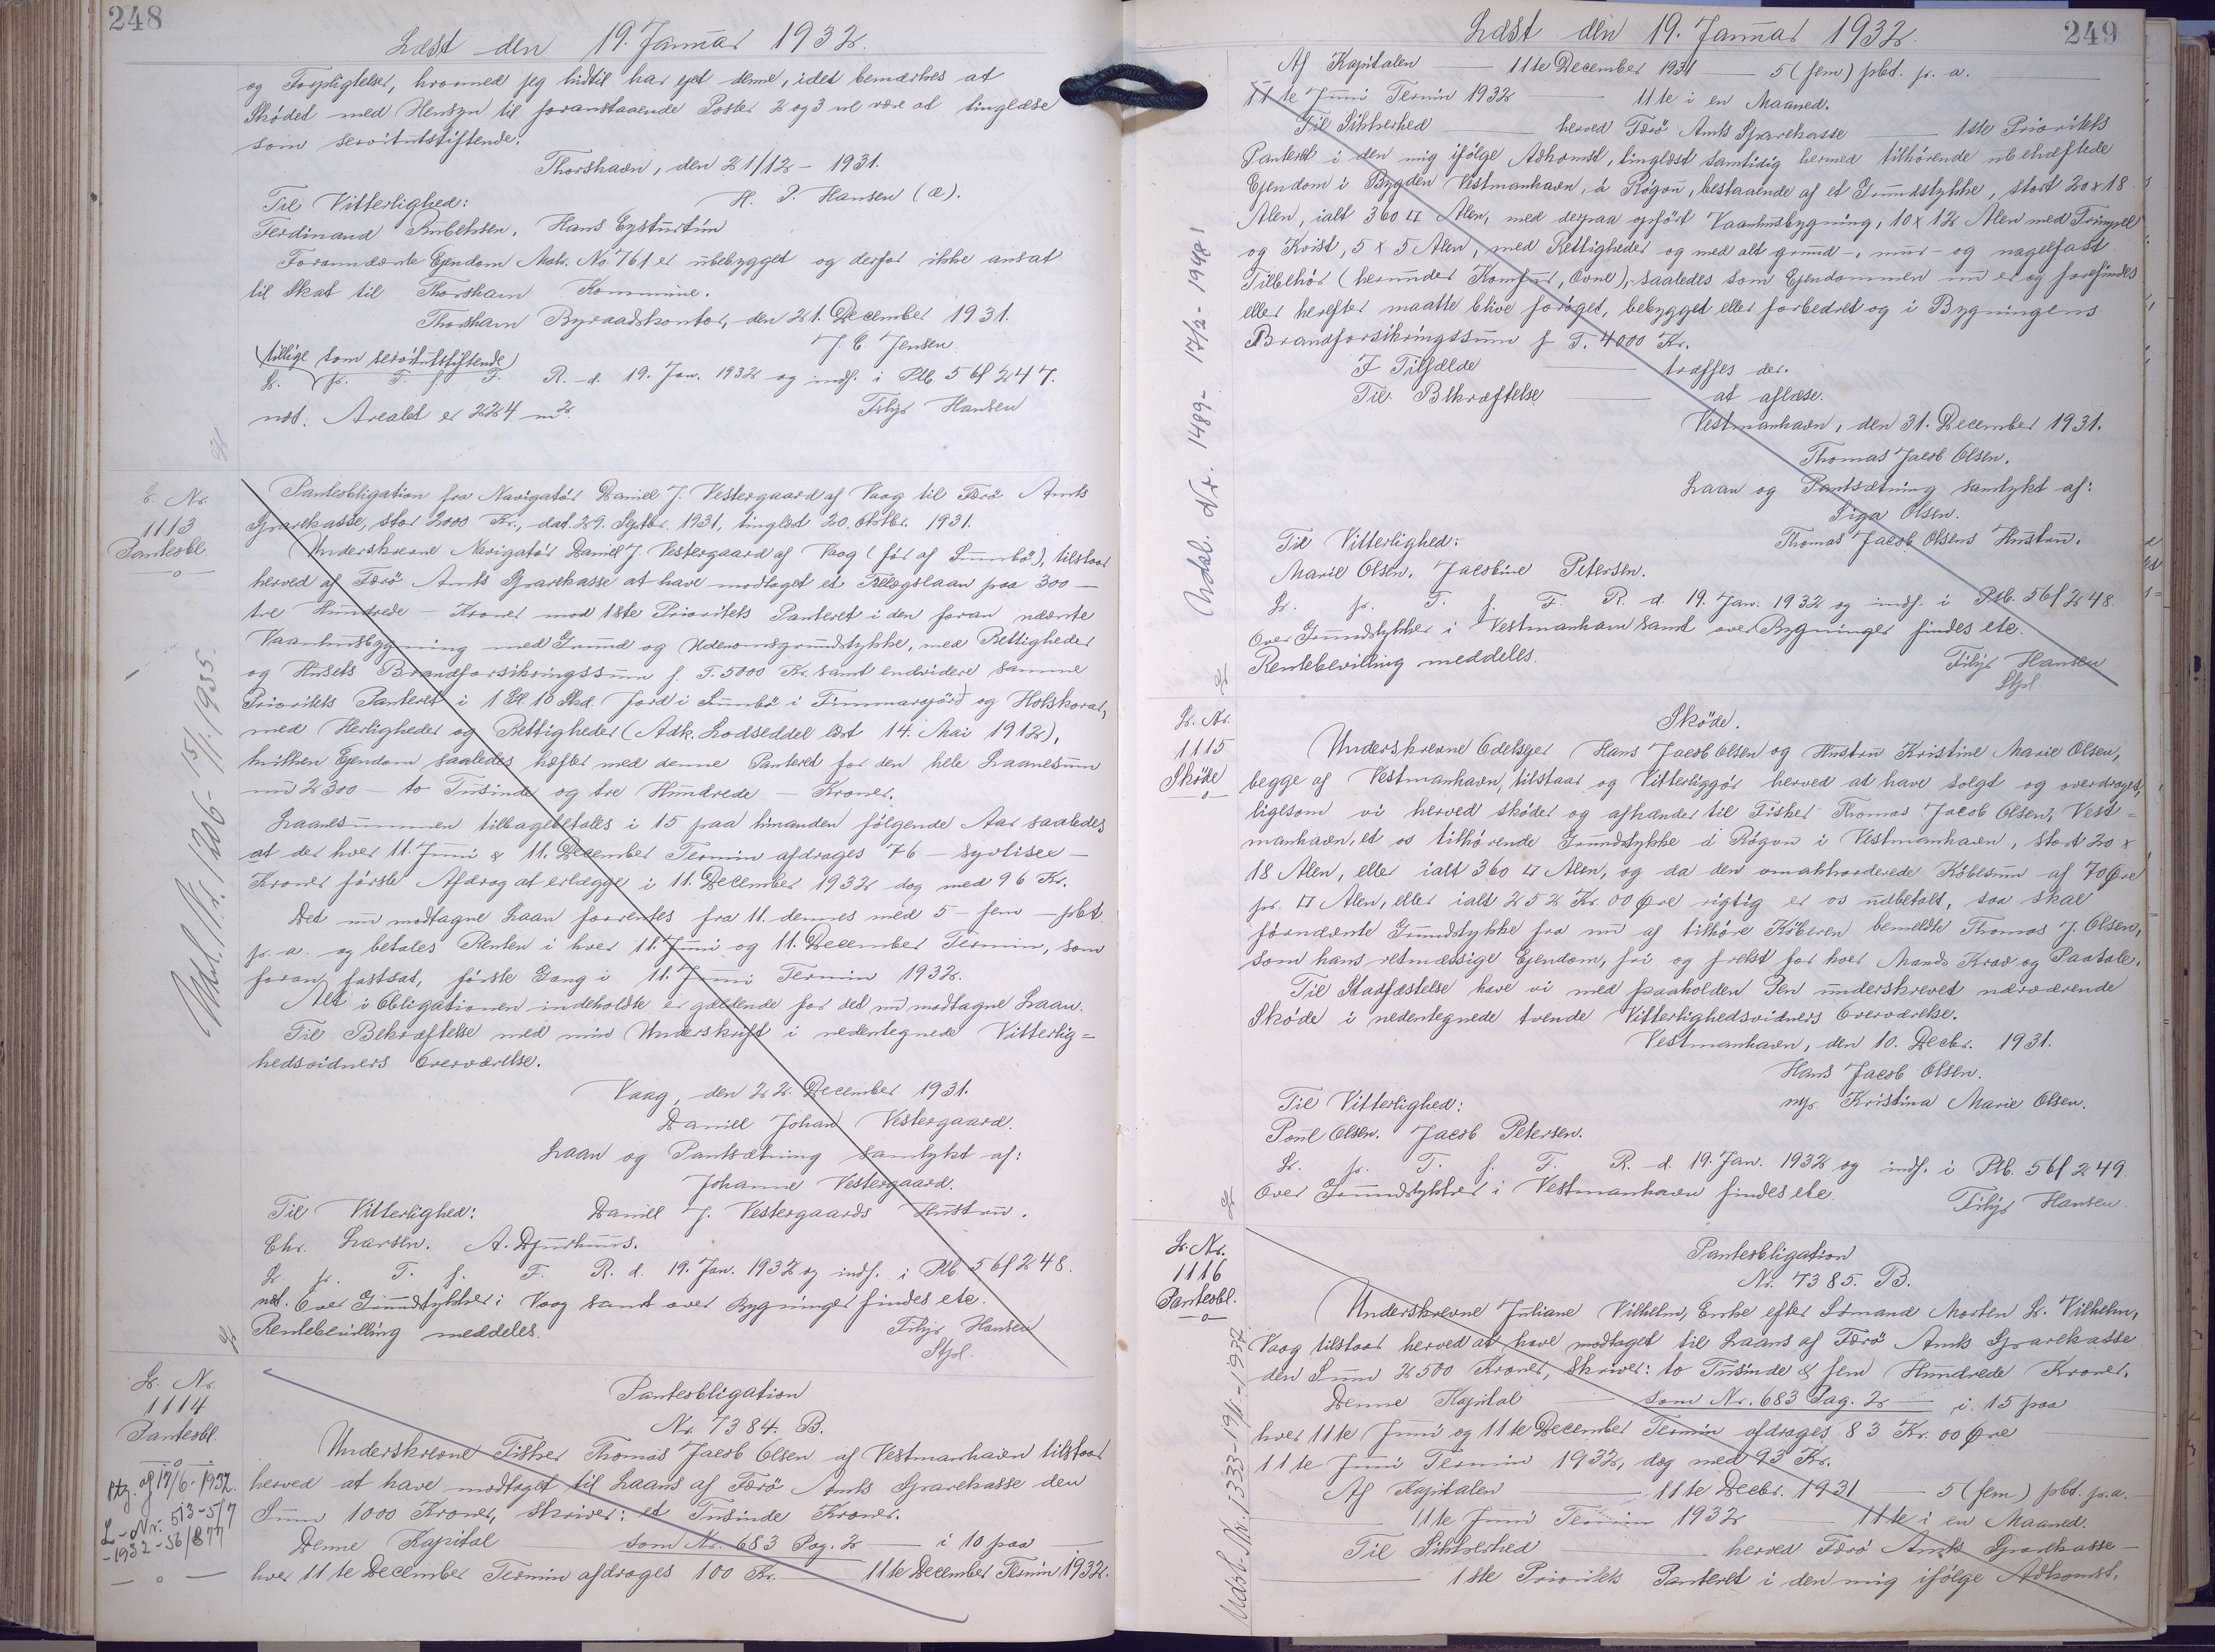 248
Læst den 19. Januar 1932.
og Forpligtelser, hvormed jeg hidtil har ejet denne, idet bemærkes at
Skødet med Hensyn til foranstaaende Poster 2 og 3 vil være at tinglæse
som servitutstiftende.
Thorshavn, den 21/12 - 1931.
Til Vitterlighed: H. J. Hansen (æ).
Ferdinand Rubeksen. Hans Eysturtún
Forannævnte Ejendom Matr. No. 761 er ubebygget og derfor ikke ansat
til Skat til Thorshavn Kommune.
Thorshavn Byraadskontor, den 21. December 1931.
J. C. Jensen
(tillige som servitutstiftende)
L. p. T. f. F. R. d. 19. Jan. 1932 og indf. i Ptb. 5 bf 247.
not. Arealet er 224 m2. Filip Hansen
L. Nr.
1113
Pantesobl.
Udsl. Nr. 1206 - 15/1. 1935.
Pantesobligation fra Navigatør Daniel J. Vestergaard af Vaag til Færø Amts
Sparekasse, stor 2000 Kr., dat. 29. Septbr. 1931, tinglæst 20. Oktbr. 1931.
Underskrevne Navigatør Daniel J. Vestergaard af Vaag (før af Sumbø), tilstaar
herved af Færø Amts Sparekasse at have modtaget et Tillægslaan paa 300 —
tre Hundrede — Kroner mod 1ste Prioritets Panteret i den foran nævnte
Vaanhusbygning med Grund og Udenomsgrundstykke, med Rettigheder
og Husets Brandforsikringssum f. T. 5000 Kr. samt endvidere samme
Prioritets Panteret i 1 Gl. 10 Skd. Jord i Sumbø i Timmarsjørð og Holskorar,
med Herligheder og Rettigheder (Adk. Lodseddel læst 14. Mai 1912),
hvilken Ejendom saaledes hæfter med denne Panteret for den hele Laanesum
nu 2300 — to Tusinde og tre Hundrede — Kroner.
Laanesummen tilbagebetales i 15 paa hinanden følgende Aar saaledes
at der hver 11. Juni & 11. December Termin afdrages 76 — syvtisex —
Kroner første Afdrag at erlægge i 11. December 1932 dog med 96 Kr.
Det nu modtagne Laan forrentes fra 11. dennes med 5 — fem — pbt.
p. a. og betales Renten i hver 11. Juni og 11. December Termin, som
foran fastsat, første Gang i 11. Juni Termin 1932.
Alt i Obligationen indeholdte er gældende for det nu modtagne Laan.
Til Bekræftelse med min Underskrift i nedentegnede Vitterlig=
hedsvidners Overværelse.
Vaag, den 22. December 1931.
Daniel Johan Vestergaard.
Laan og Pantsætning samtykt af:
Johanne Vestergaard.
Til Vitterlighed: Daniel J. Vestergaards Hustru.
Chr. Larsen. A. Djurhuus.
L. p. T. f. F. R. d. 19. Jan. 1932 og indf. i Ptb. 5 bf 248.
not. Over Grundstykker i Vaag samt over Bygninger findes etc.
Rentebevilling meddeles. Filip Hansen
Stpl.
L. Nr.
1114
Pantesobl.
Ptg. af 17/6 - 1932.
L-Nr. 513 - 5/7
-1932 - 56/877
Pantesobligation
Nr. 7384. B.
Underskrevne Fisker Thomas Jacob Olsen af Vestmanhavn tilstaar
herved at have modtaget til Laans af Færø Amts Sparekasse den
Sum 1000 Kroner, skriver: et Tusinde Kroner.
Denne Kapital — som Nr. 683 Pag. 2 — i 10 paa
hver 11te December Termin afdrages 100 Kr. — 11te December Termin 1932.
249
Læst den 19. Januar 1932.
Af Kapitalen — 11te December 1931 — 5 (fem) pbt. p. a. —
11te Juni Termin 1932 — 11te i en Maaned.
Til Sikkerhed — herved Færø Amts Sparekasse — 1ste Prioritets
Panteret i den mig ifølge Adkomst, tinglæst samtidig hermed tilhørende ubehæftede
Ejendom i Bygden Vestmanhavn, á Røgou, bestaaende af et Grundstykke, stort 20 x 18
Alen, ialt 360 □ Alen, med derpaa opført Vaanhusbygning, 10 x 12 Alen med Trimpel
og Kvist, 5 x 5 Alen, med Rettigheder og med alt grund-, mur- og nagelfast
Tilbehør (herunder Komfur, Ovne), saaledes som Ejendommen nu er og forefindes
eller herefter maatte blive forøget, bebygget eller forbedret og i Bygningens
Brandforsikringssum f. T. 4000 Kr.
I Tilfælde — træffes der.
Til Bekræftelse — at aflæse.
Vestmanhavn, den 31. December 1931.
Thomas Jacob Olsen.
Laan og Pantsætning samtykt af:
Siga Olsen.
Til Vitterlighed: Thomas Jacob Olsens Hustru.
Marie Olsen. Jacobine Petersen.
L. p. T. f. F. R. d. 19. Jan. 1932 og indf. i Ptb. 5 bf 248.
Over Grundstykker i Vestmanhavn samt over Bygninger findes etc.
Rentebevilling meddeles. Filip Hansen
Stpl.
Udsl. Nr. 1489 - 17/2 - 1948!
L. Nr.
1115
Skøde
Skøde.
Underskrevne Odelsejer Hans Jacob Olsen og Hustru Kristine Marie Olsen,
begge af Vestmanhavn, tilstaar og Vitterliggør herved at have solgt og overdraget,
ligesom vi herved skøder og afhænder til Fisker Thomas Jacob Olsen, Vest=
manhavn, et os tilhørende Grundstykke á Røgou i Vestmanhavn, stort 20 x
18 Alen, eller ialt 360 □ Alen, og da den omakkorderede Købesum af 70 Øre
pr. □ Alen, eller ialt 252 Kr. 00 Øre rigtig er os udbetalt, saa skal
førnævnte Grundstykke fra nu af tilhøre Køberen bemeldte Thomas J. Olsen,
som hans retmæssige Ejendom, fri og frelst for hver Mands Krav og Paatale.
Til Stadfæstelse have vi med paaholden Pen underskrevet nærværende
Skøde i nedentegnede tvende Vitterlighedsvidners Overværelse.
Vestmanhavn, den 10. Decbr. 1931.
Hans Jacob Olsen.
Til Vitterlighed: m/p. Kristina Marie Olsen.
Poul Olsen. Jacob Petersen.
L. p. T. f. F. R. d. 19. Jan. 1932 og indf. i Ptb. 5 bf 249.
Over Grundstykker i Vestmanhavn findes etc. Filip Hansen
L. Nr.
1116
Pantesobl.
Udsl. Nr. 1333 - 19/1. - 1937.
Pantesobligation
Nr. 7385. B.
Underskrevne Juliane Vilhelm, Enke efter Edmand Morten L. Vilhelm,
Vaag tilstaar herved at have modtaget til Laans af Færø Amts Sparekasse
den Sum 2500 Kroner, skriver: to Tusinde & fem Hundrede Kroner.
Denne Kapital — som Nr. 683 Pag. 2 — i 15 paa
hver 11te Juni og 11te December Termin afdrages 83 Kr. 00 Øre
11te Juni Termin 1932, dog med 93 Kr.
Af Kapitalen — 11te Decbr. 1931 — 5 (fem) pbt. p. a. —
11te Juni Termin 1932 — 11te i en Maaned.
Til Sikkerhed — herved Færø Amts Sparekasse —
1ste Prioritets Panteret i den mig ifølge Adkomst,